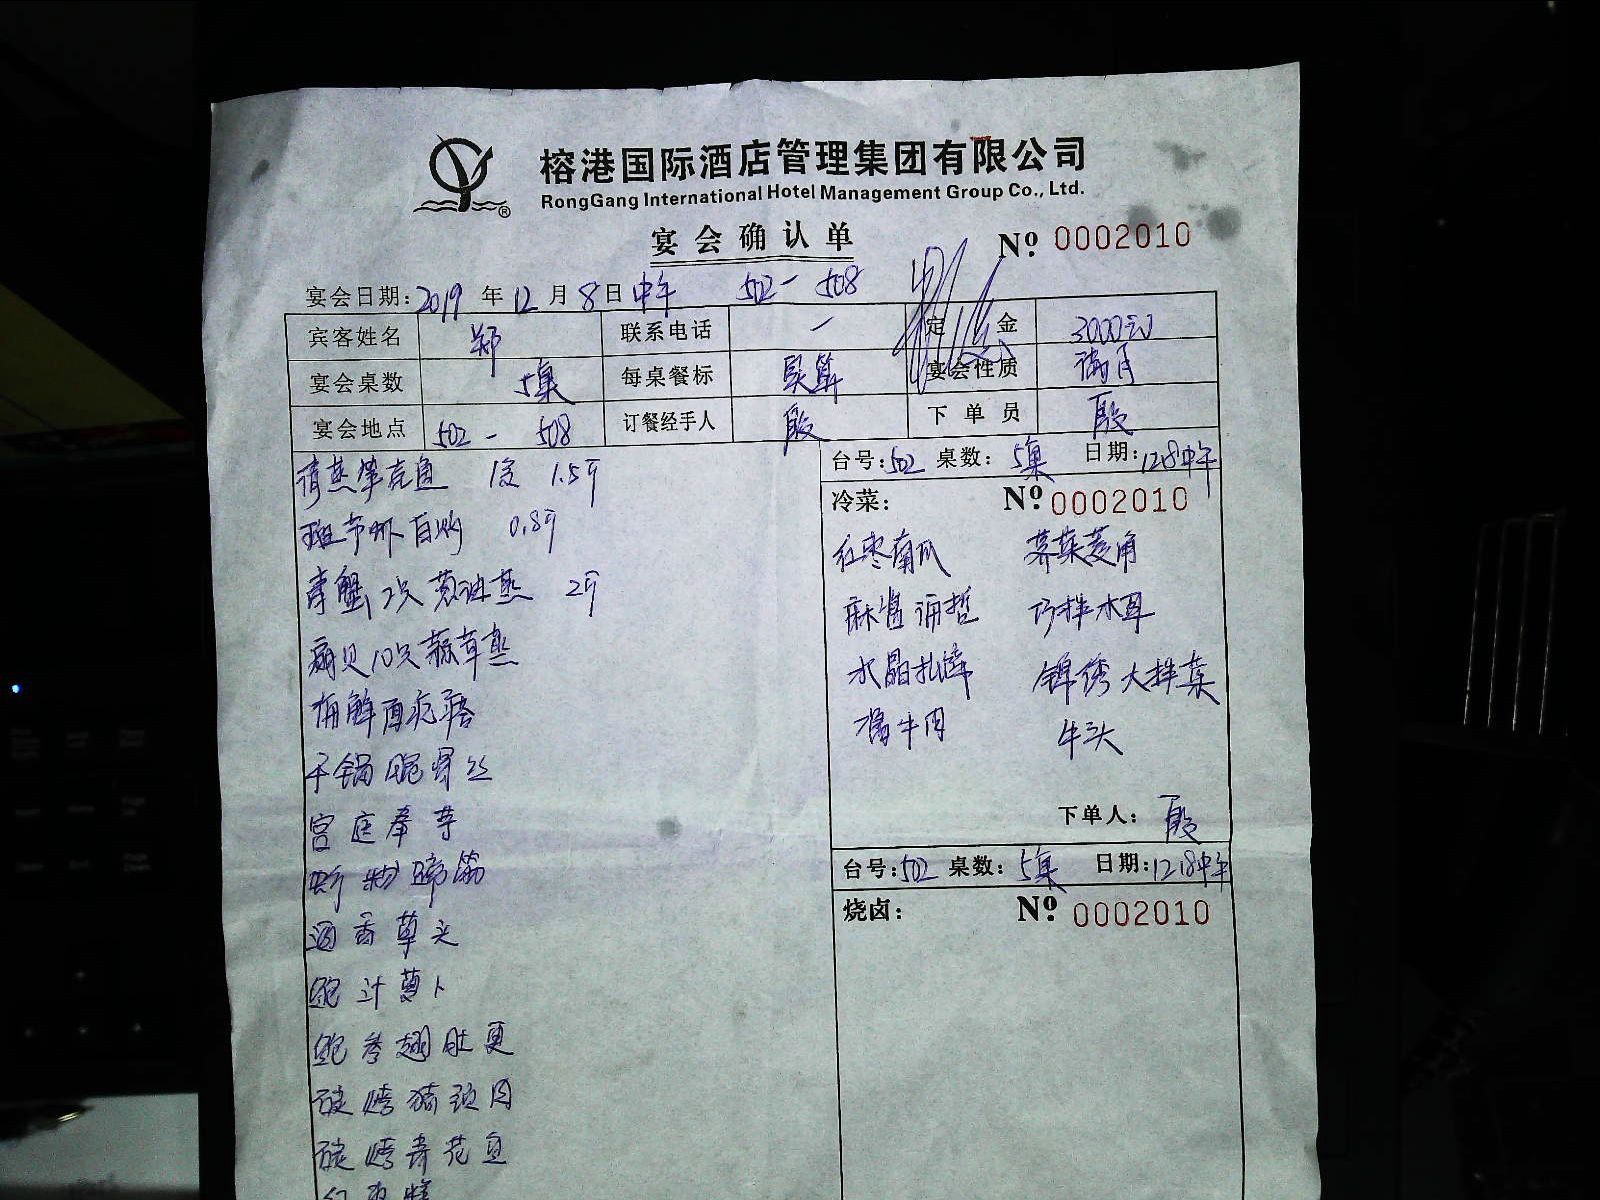 榕港国际酒店管理集团有限公司
RongGang International Hotel Management Group Co., Ltd.
宴会确认单 No. 0002010
宴会日期: 2019 年 12 月 8 日 中午 502 - 508
宾客姓名 郑 联系电话 - 定金 3000元
宴会桌数 5桌 每桌餐标 宴会性质 满月
宴会地点 502 - 508 订餐经手人 殷 下单员 殷
台号: 502 桌数: 5桌 日期: 12.8中午
清蒸 1.5斤
冷菜: No. 0002010
斑节虾 白灼 0.8斤
红枣南瓜 荠菜菱角
青蟹2只 葱油蒸 2斤
麻酱 巧拌木耳
扇贝10只 蒜茸蒸
水晶扎蹄 锦绣大拌菜
牛肉 牛头
干锅
下单人: 殷
宫庭
虾籽蹄筋
台号: 502 桌数: 5桌 日期: 12.8中午
酒香草头
烧卤: No. 0002010
鲍汁萝卜
鲍参翅肚羹
碳烤猪颈肉
碳烤青花鱼
红枣糕